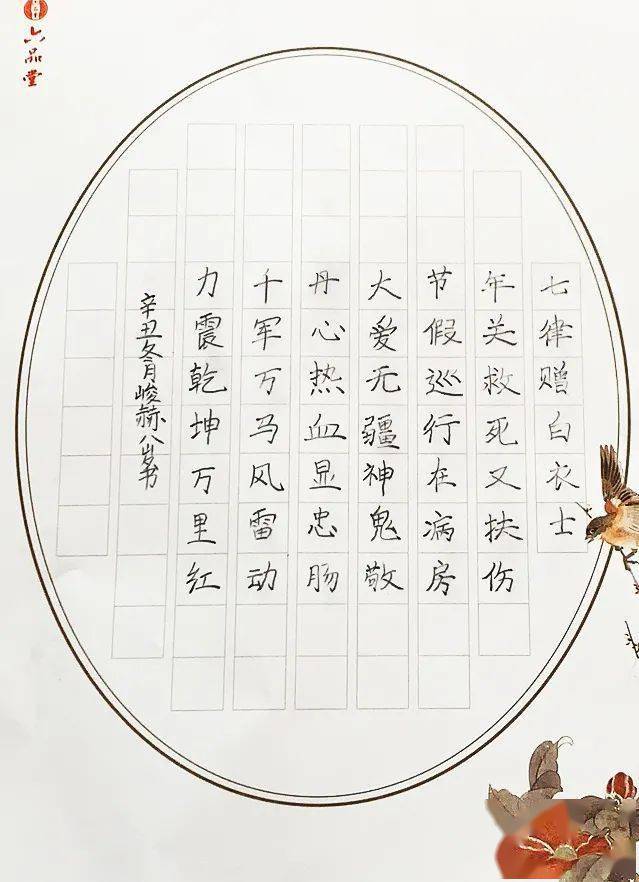 七律赠白衣士
年关救死又扶伤
节假巡行在病房
大爱无疆神鬼敬
丹心热血显忠肠
千军万马风雷动
力震乾坤万里红
辛丑冬月峻赫八岁书
六品堂